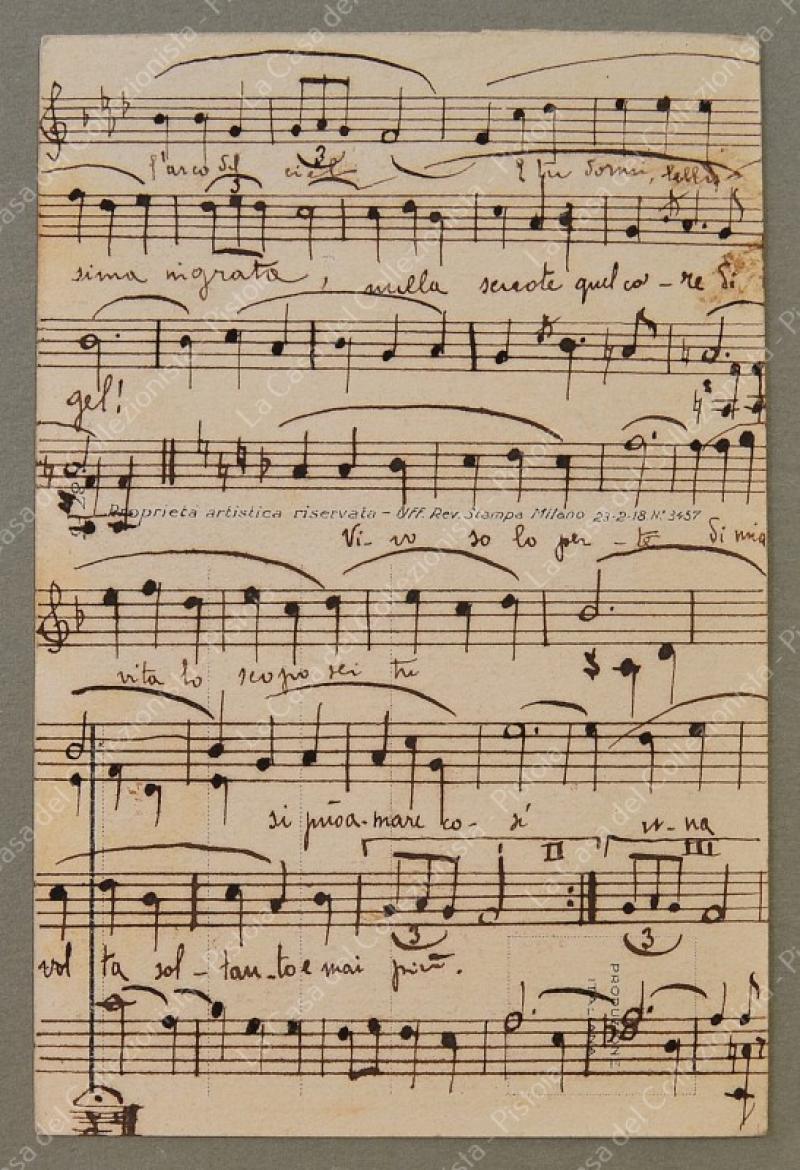 l'arco del ciel E tu dormi, bellis
3
3
sima ingrata, nulla scuote quel co-re di
gel!
Proprietà artistica riservata - Uff. Rev. Stampa Milano 23-2-18 N.º 3457
Vi-vo so lo per-te di mia
vita lo scopo sei tu
si può a-mare co-sì u-na
II III
3 3
vol ta sol-tan-to e mai più.
PROPU
ITALIANA
La Casa del Collezionista - Pistoia